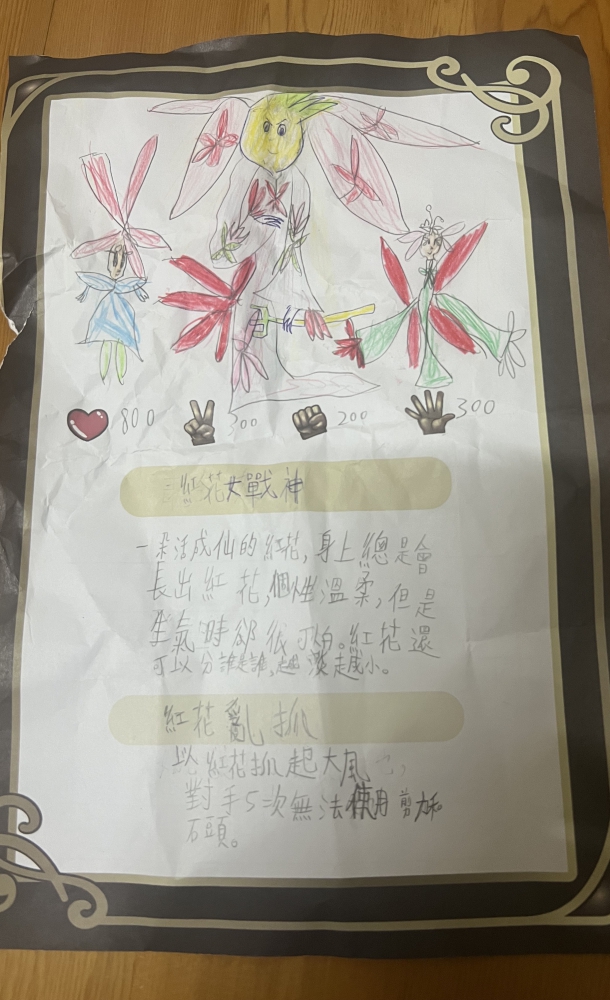 800 300 200 300
紅花女戰神
一朵活成仙的紅花,身上總是會
長出紅花,個性溫柔,但是
生氣時卻很可怕。紅花還
可以分誰是誰,越淡越小。
紅花亂抓
以紅花抓起大風
對手5次無法使用剪刀和
石頭。